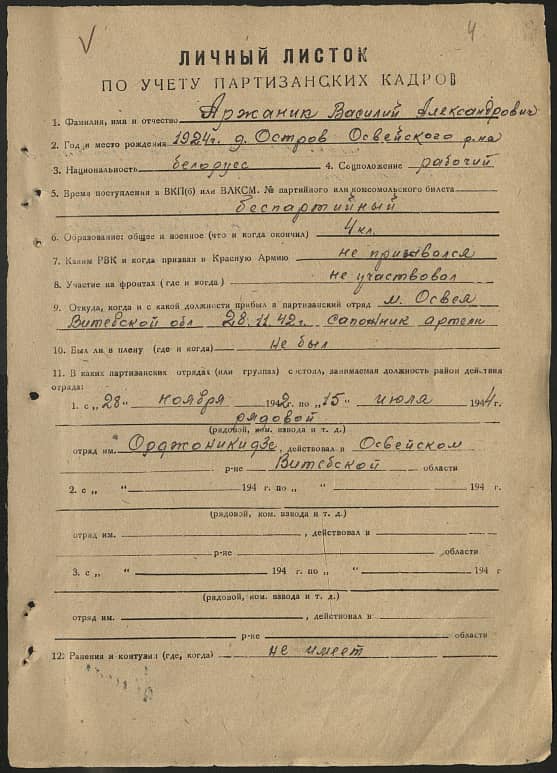 4
ЛИЧНЫЙ ЛИСТОК
ПО УЧЕТУ ПАРТИЗАНСКИХ КАДРОВ
1. Фамилия, имя и отчество Аржаник Василий Александрович
2. Год и место рождения 1924г. д. Остров Освейского р-на
3. Национальность белорусс 4. Соцположение рабочий
5. Время поступления в ВКП(б) или ВЛКСМ. № партийного или комсомольского билета
беспартийный
6. Образование: общее и военное (что и когда окончил) 4 кл.
7. Каким РВК и когда призван в Красную Армию не призвался
8. Участие на фронтах (где и когда) не участвовал
9. Откуда, когда и с какой должности прибыл в партизанский отряд м. Освея
Витебской обл 28.11.42г. сапожник артели
10. Был ли в плену (где и когда) не был
11. В каких партизанских отрядах (или группах) состоял, занимаемая должность район действия
отряда:
1. с „28" ноября 1942 г. по „15" июля 1944 г.
рядовой
(рядовой, ком. взвода и т. д.)
отряд им. Орджоникидзе, действовал в Освейском
р-не Витебской области
2. с „ " 194 г. по „ " 194 г
(рядовой, ком. взвода и т. д.)
отряд им. , действовал в
р-не области
3. с „ " 194 г. по „ " 194 г
(рядовой, ком. взвода и т. д.)
отряд им. , действовал в
р-не области
12. Ранения и контузии (где, когда) не имеет